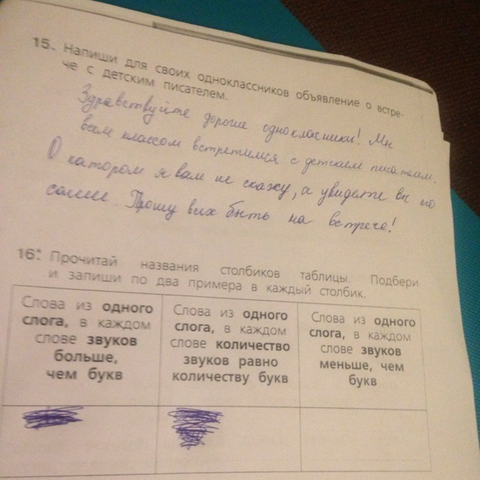 15. Напиши для своих одноклассников объявление о встре-
че с детским писателем.
Здравствуйте дорогие однокласники! Мы
всем классом встретимся с детским писателем.
О катором я вам не скажу, а увидите вы его
сами. Прошу всех быть на встрече!
16* Прочитай названия столбиков таблицы. Подбери
и запиши по два примера в каждый столбик.
Слова из одного
слога, в каждом
слове звуков
больше,
чем букв
Слова из одного
слога, в каждом
слове количество
звуков равно
количеству букв
Слова из одного
слога, в каждом
слове звуков
меньше, чем
букв